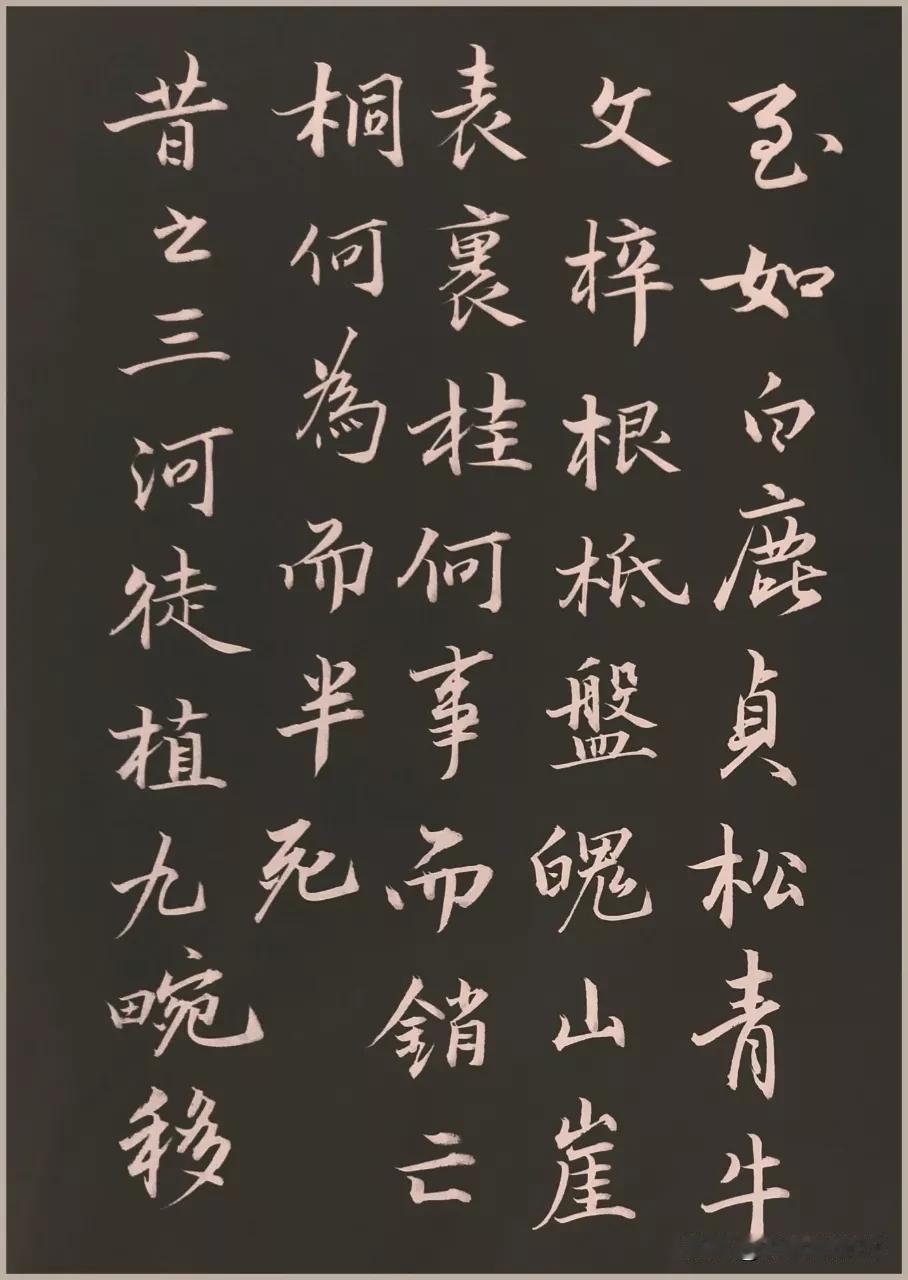 至如白鹿貞松青牛
文梓根柢盤魄山崖
表裏桂何事而銷亡
桐何為而半死
昔之三河徒植九畹移